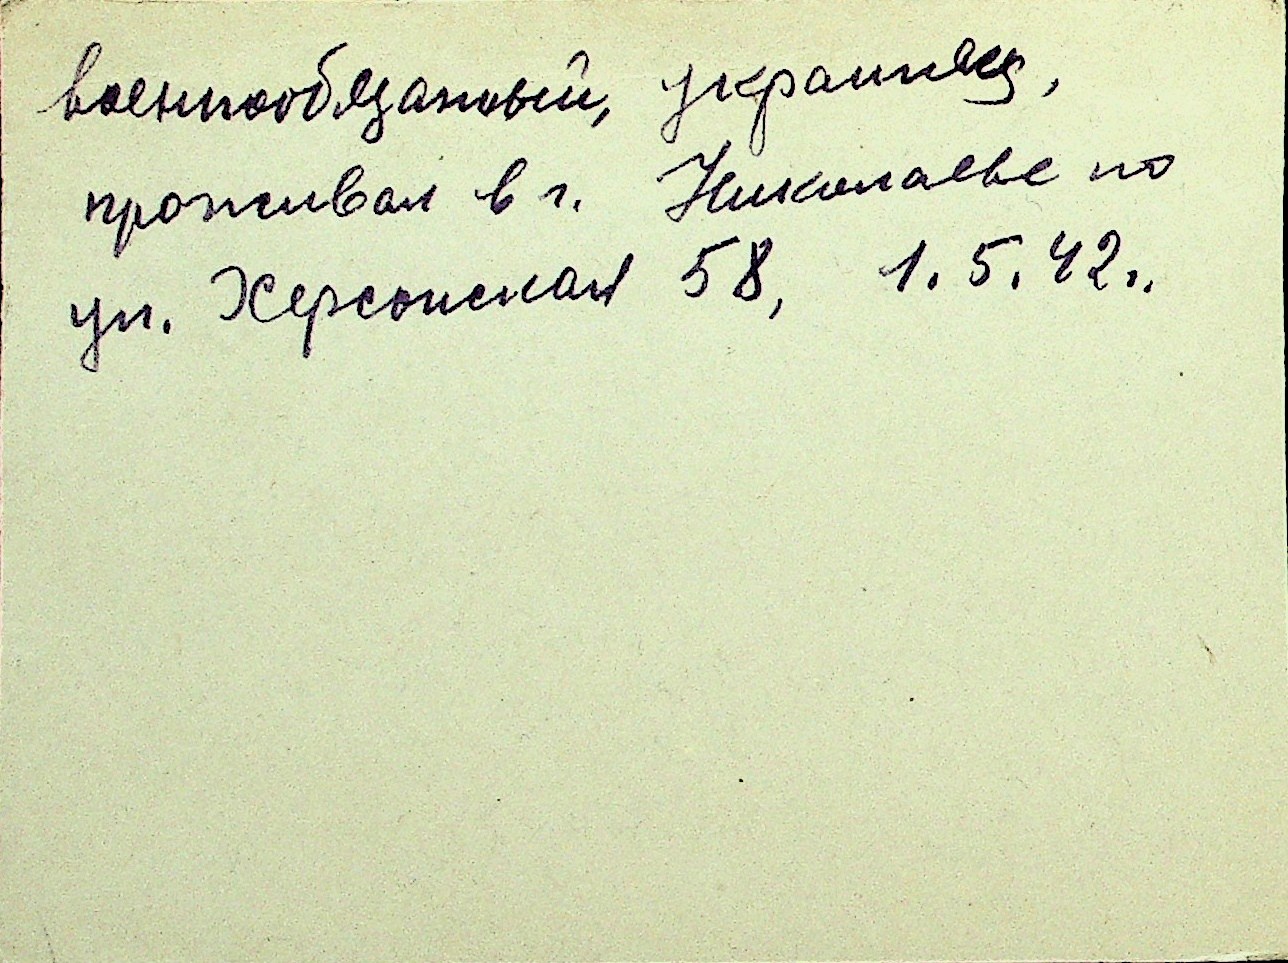 военнообязаный, украинец,
проживал в г. Николаеве по
ул. Херсонская 58, 1.5.42..